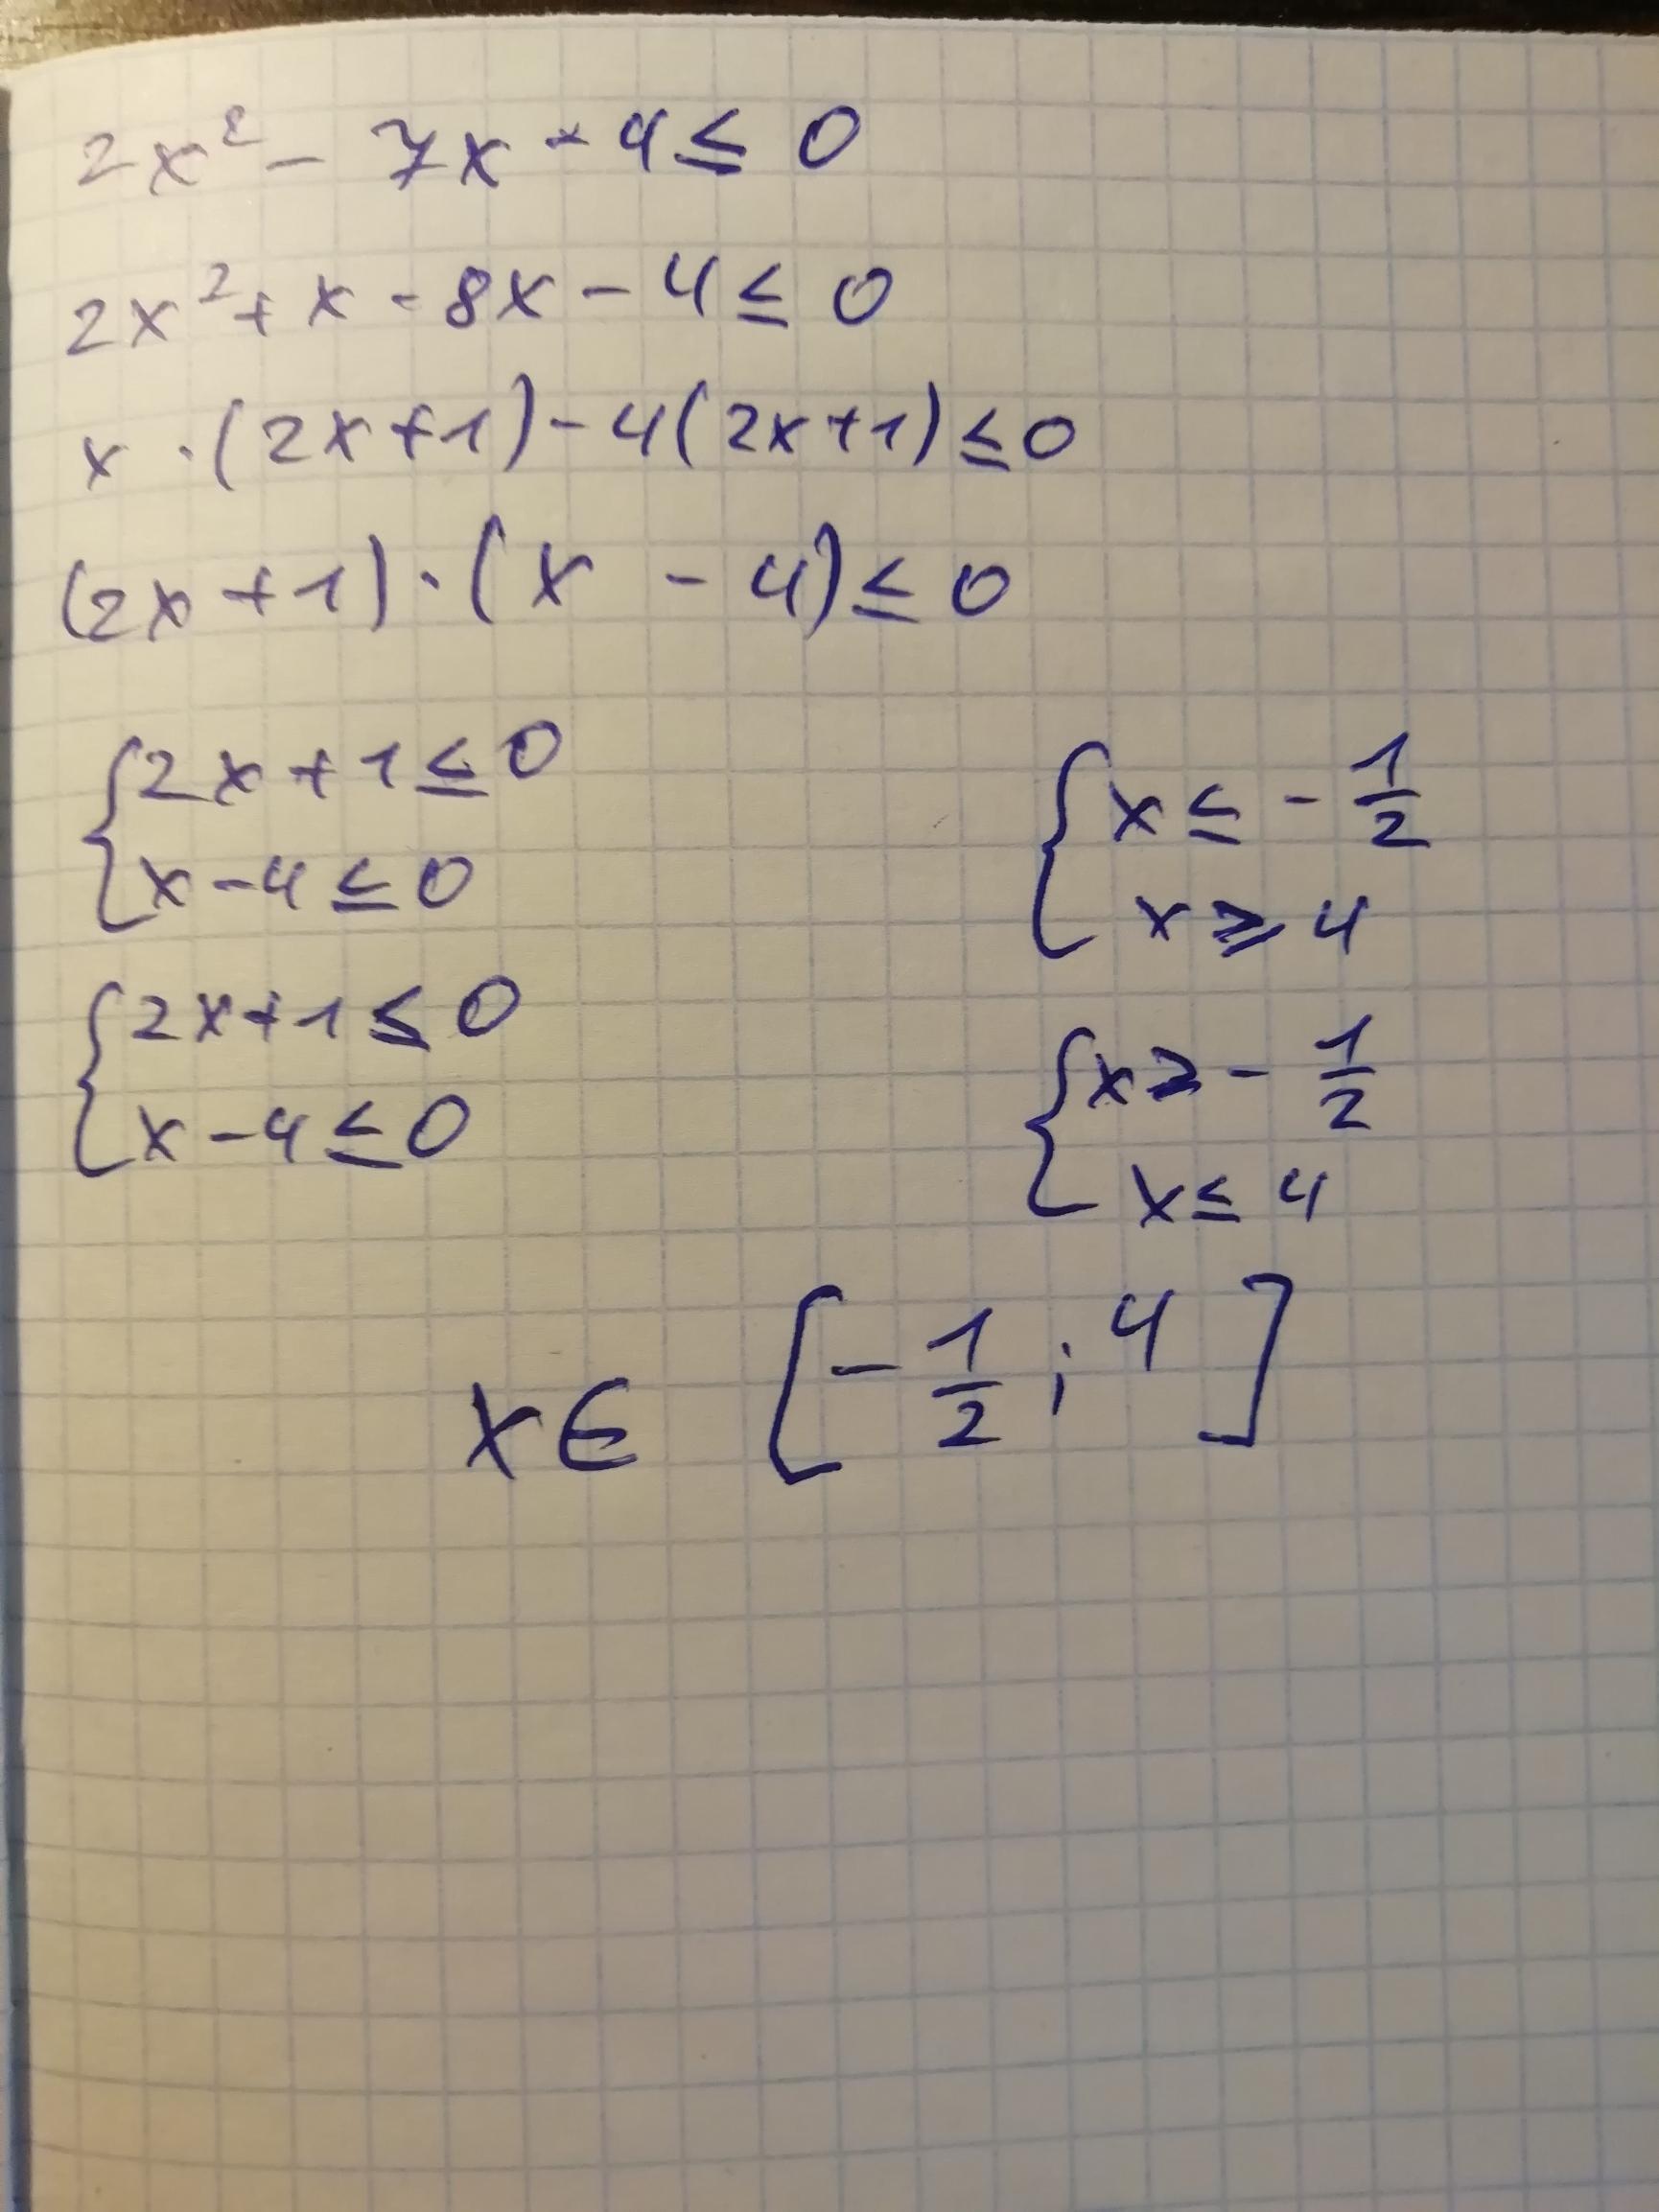 2x² - 7x - 4 ≤ 0
2x² + x - 8x - 4 ≤ 0
x · (2x+1) - 4(2x+1) ≤ 0
(2x+1) · (x - 4) ≤ 0
{2x+1 ≤ 0
x-4 ≤ 0
{2x+1 ≤ 0
x-4 ≤ 0
{x ≤ - 1/2
x ⩾ 4
{x ≥ - 1/2
x ≤ 4
x ∈ [- 1/2 ; 4]